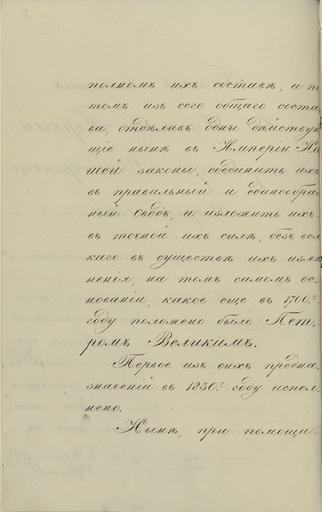 полномъ ихъ составѣ, и по
томъ изъ сего общаго соста
ва, отдѣливъ одни дѣйствую
щіе нынѣ въ Имперіи На
шей законы, соединить ихъ
въ правильный и единообраз
ный Сводъ, и изложить ихъ
въ точной ихъ силѣ, безъ вся
каго въ существѣ ихъ измѣ
ненія, на томъ самомъ ос
нованіи, какое еще въ 1700.мъ
году положено было Пет
ромъ Великимъ.
Первое изъ сихъ предна
значеній въ 1830.мъ году испол
нено.
Нынѣ, при помощи